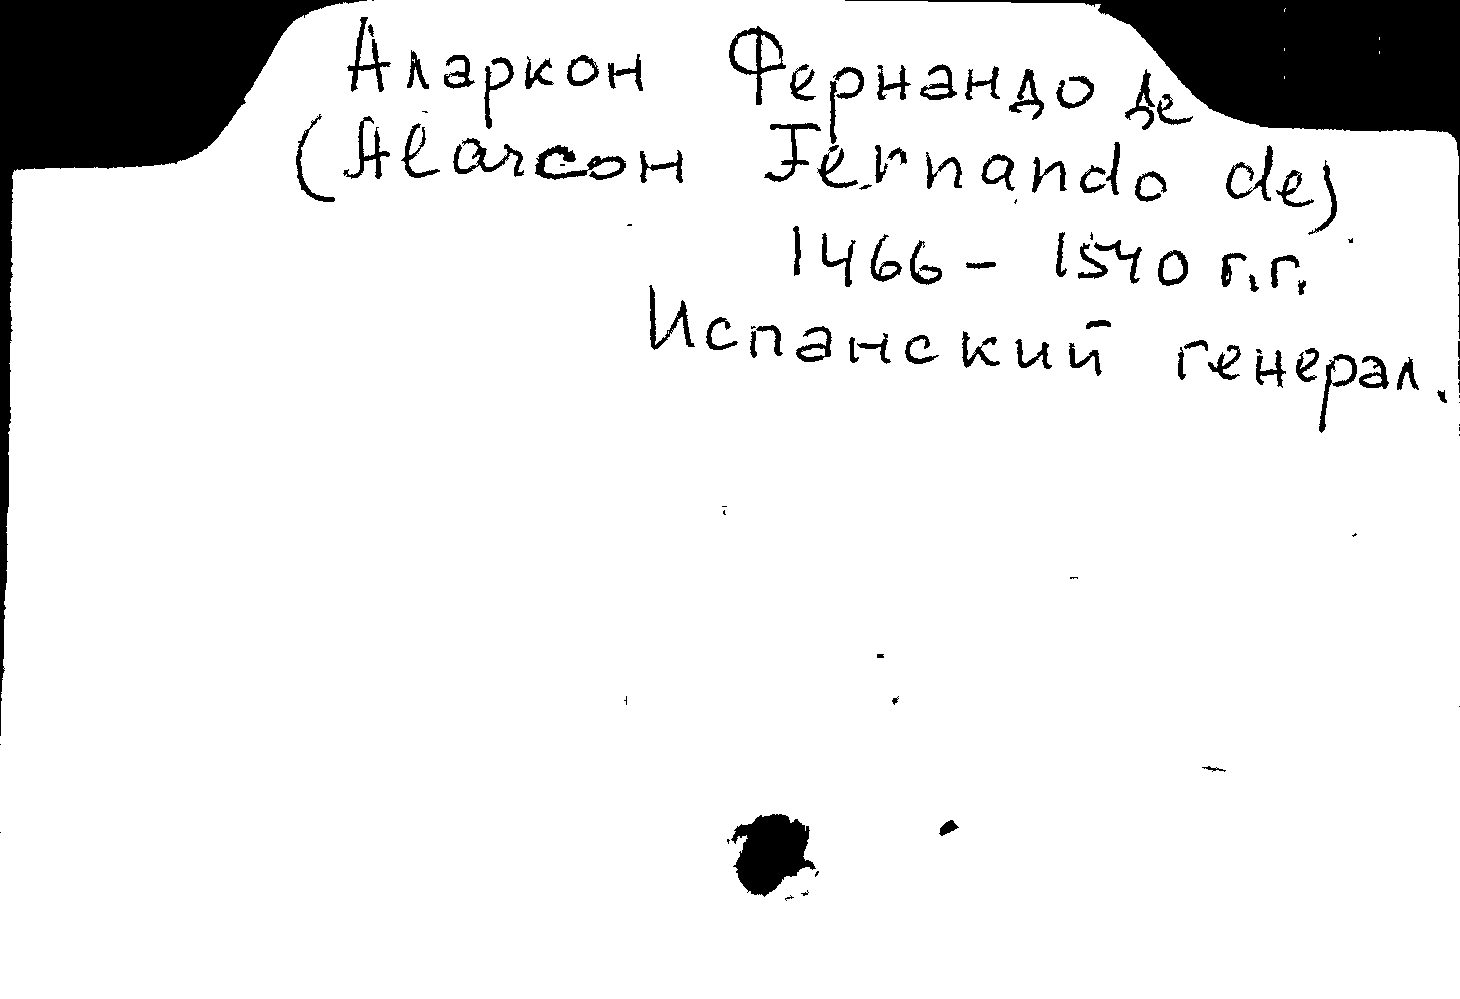 Аларкон Фернандо де
(Alarcoн Fernando de)
1466 - 1540 г.г.
Испанский генерал.